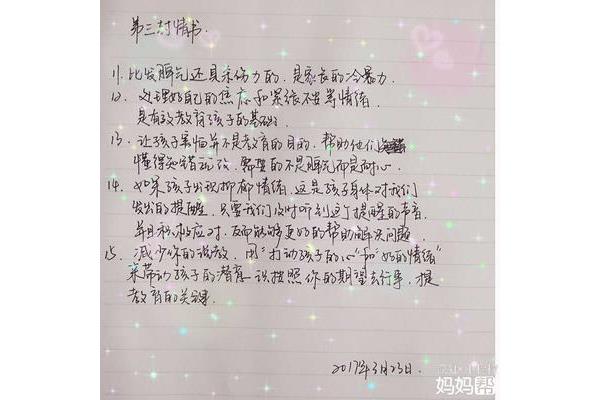 第三封情书.
11. 比发脾气还具杀伤力的, 是家长的冷暴力.
12. 处理好自己的焦虑和紧张不安等情绪,
是有效教育孩子的基础.
13. 让孩子害怕并不是教育的目的, 帮助他们
懂得知错就改, 需要的不是脾气而是耐心.
14. 如果孩子出现抑郁情绪, 这是孩子身体对我们
发出的提醒, 只要我们及时听到这个提醒的声音,
并且积极应对, 反而能够更好的帮助解决问题.
15. 减少你的说教, 用“打动孩子的心”和“好的情绪”
来带动孩子的潜意识按照你的期望去行事, 才是
教育的关键.
2017年3月23日.
妈妈帮